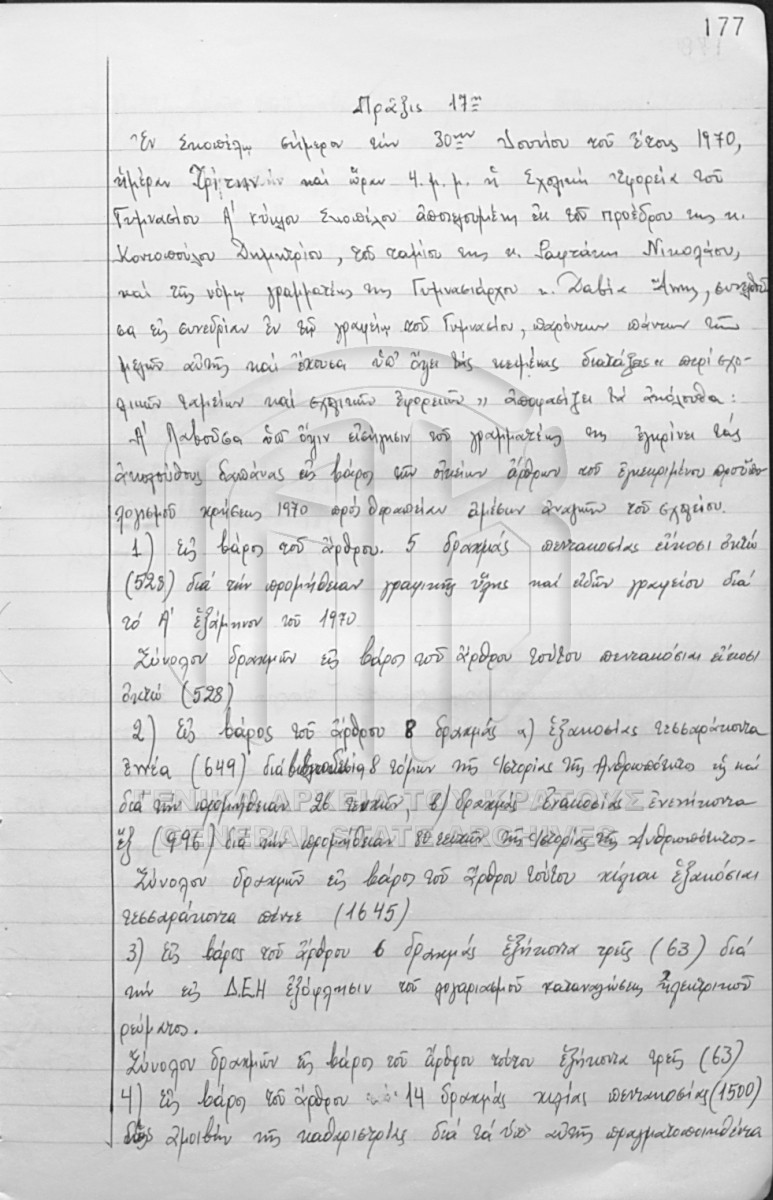 177
Πρᾶξις 17η
Ἐν Σκοπέλῳ σήμερον τὴν 30ην Ἰουνίου τοῦ ἔτους 1970,
ἡμέραν Τρίτην καὶ ὥραν 4 μ.μ. ἡ Σχολικὴ Ἐφορεία τοῦ
Γυμνασίου Α' κύκλου Σκοπέλου ἀποτελουμένη ἐκ τοῦ προέδρου της κ.
Κοντοπούλου Δημητρίου, τοῦ ταμίου της κ. Ραφτάκη Νικολάου,
καὶ τῆς νόμῳ γραμματέως της Γυμνασιάρχου κ. Δαβία Ἄννης, συνελθοῦ
σα εἰς συνεδρίαν ἐν τῷ γραφείῳ τοῦ Γυμνασίου, παρόντων πάντων τῶν
μελῶν αὐτῆς καὶ ἔχουσα ὑπ' ὄψει τὰς κειμένας διατάξεις « περὶ σχο-
λικῶν ταμείων καὶ σχολικῶν ἐφορειῶν » ἀποφασίζει τὰ ἀκόλουθα:
Α' Λαβοῦσα ὑπ' ὄψιν εἰσήγησιν τοῦ γραμματέως της ἐγκρίνει τὰς
ἀκολούθους δαπάνας εἰς βάρος τῶν οἰκείων ἄρθρων τοῦ ἐγκεκριμένου προϋπο
λογισμοῦ χρήσεως 1970 πρὸς θεραπείαν ἀμέσων ἀναγκῶν τοῦ σχολείου.
1) Εἰς βάρος τοῦ ἄρθρου. 5 δραχμάς πεντακοσίας εἴκοσι ὀκτώ
(528) διά τὴν προμήθειαν γραφικῆς ὕλης καί εἰδῶν γραφείου διά
τό Α' ἑξάμηνον τοῦ 1970
Σύνολον δραχμῶν εἰς βάρος τοῦ ἄρθρου τούτου πεντακόσιαι εἴκοσι
ὀκτώ (528)
2) Εἰς βάρος τοῦ ἄρθρου 8 δραχμάς α) ἑξακοσίας τεσσαράκοντα
ἐννέα (649) διά βιβλιοδεσία 8 τόμων τῆς Ἱστορίας τῆς Ἀνθρωπότητος καί
διά τήν προμήθειαν 26 τευχῶν, β) δραχμάς ἐνακοσίας ἐνενήκοντα
ἕξ (996) διά τήν προμήθειαν 80 τευχῶν τῆς Ἱστορίας τῆς Ἀνθρωπότητος.-
Σύνολον δραχμῶν εἰς βάρος τοῦ ἄρθρου τούτου χίλιαι ἑξακόσιαι
τεσσαράκοντα πέντε (1645)
3) Εἰς βάρος τοῦ ἄρθρου 6 δραχμάς ἑξήκοντα τρεῖς (63) διά
τήν εἰς Δ.Ε.Η ἐξόφλησιν τοῦ λογαριασμοῦ καταναλώσεως ἠλεκτρικοῦ
ρεύματος.
Σύνολον δραχμῶν εἰς βάρος τοῦ ἄρθρου τούτου ἑξήκοντα τρεῖς (63)
4) Εἰς βάρος τοῦ ἄρθρου 14 δραχμάς χιλίας πεντακοσίας (1500)
ἀμοιβήν τῆς καθαριστρίας διά τά ὑπ' αὐτῆς πραγματοποιηθέντα
ΓΕΝΙΚΑ ΑΡΧΕΙΑ ΤΟΥ ΚΡΑΤΟΥΣ
GENERAL STATE ARCHIVES